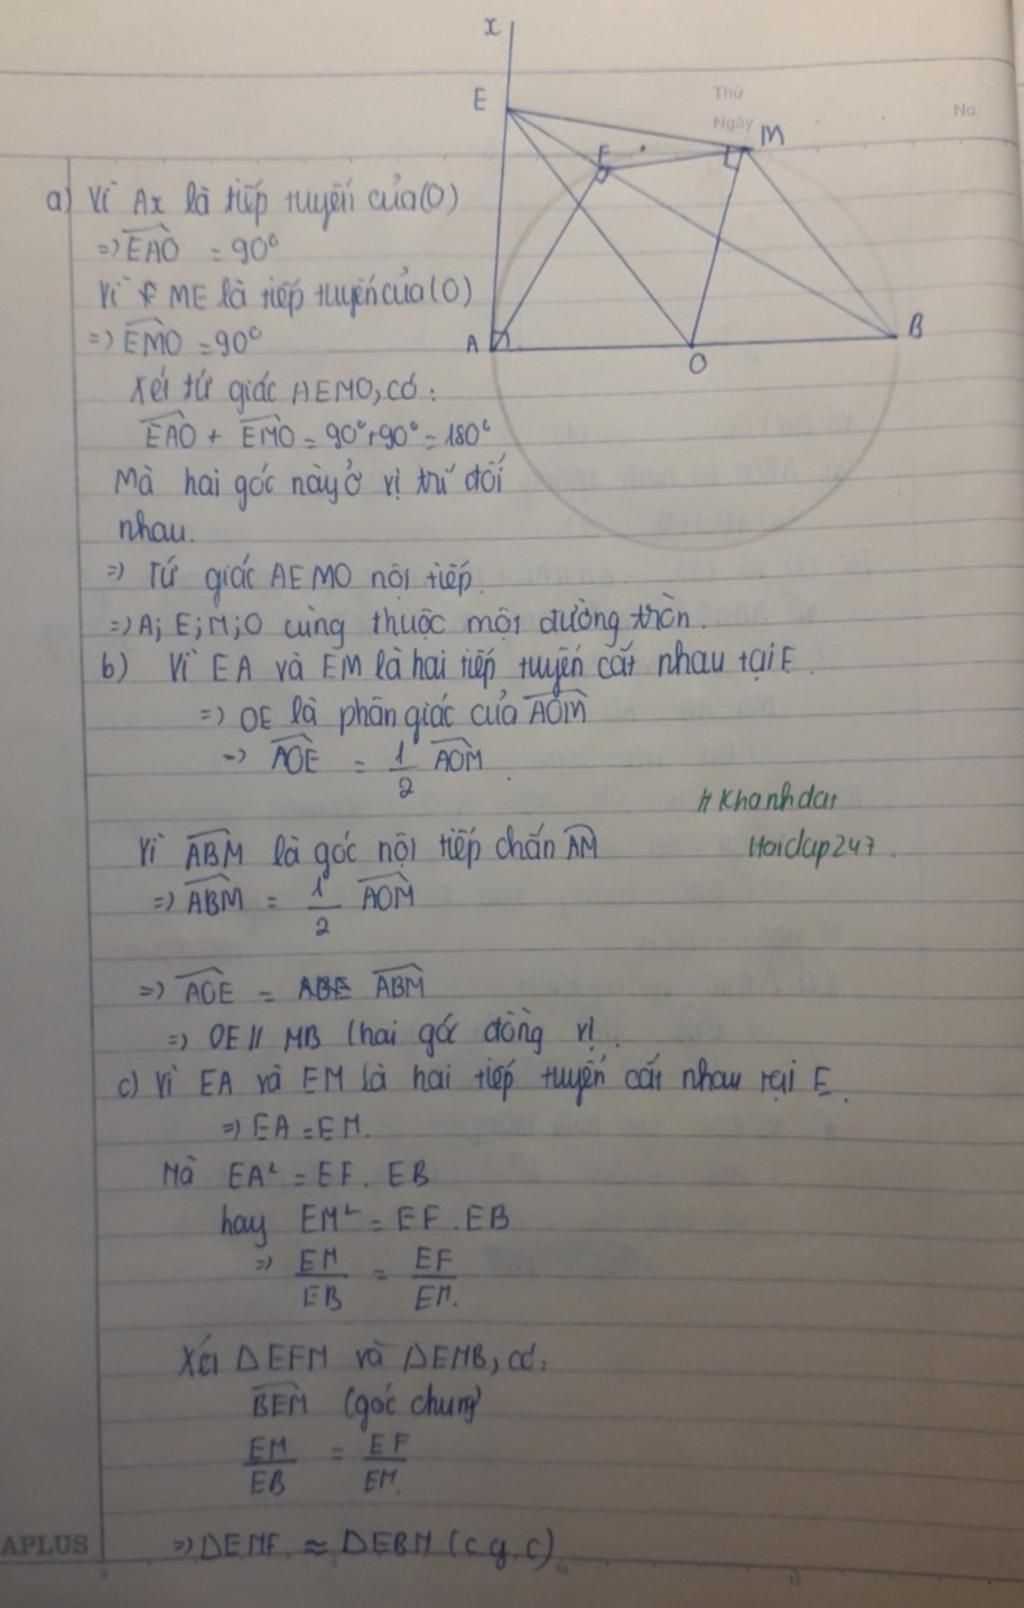 x
E
Thứ
Ngày
No
M
F
A
O
B
a) Vì Ax là tiếp tuyến của (O)
=> EAO = 90°
Vì ME là tiếp tuyến của (O)
=> EMO = 90°
Xét tứ giác AEMO, có:
EAO + EMO = 90° + 90° = 180°
Mà hai góc này ở vị trí đối
nhau.
=> Tứ giác AEMO nội tiếp.
=> A; E; M; O cùng thuộc một đường tròn.
b) Vì EA và EM là hai tiếp tuyến cắt nhau tại E.
=> OE là phân giác của AOM
=> AOE = 1/2 AOM.
# Khanhdat
Hoidap247.
Vì ABM là góc nội tiếp chắn AM
=> ABM = 1/2 AOM
=> AOE = ABE ABM
=> OE // MB (hai góc đồng vị.
c) Vì EA và EM là hai tiếp tuyến cắt nhau tại E.
=> EA = EM.
Mà EA² = EF. EB
hay EM² = EF. EB
=> EM/EB = EF/EM.
Xét ΔEFM và ΔEMB, có:
BEM (góc chung)
EM/EB = EF/EM.
=> ΔEMF ≈ ΔEBM (c.g.c)
APLUS